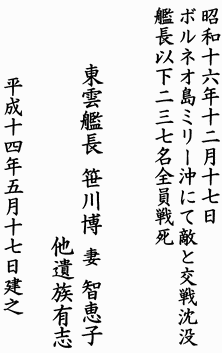 昭和十六年十二月十七日
ボルネオ島ミリー沖にて敵と交戦沈没
艦長以下二三七名全員戦死
東雲艦長 笹川博 妻 智恵子
他遺族有志
平成十四年五月十七日建之